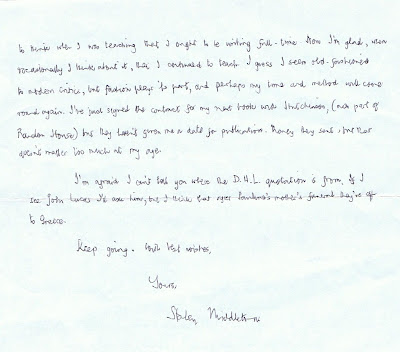 to think when I was teaching that I ought to be writing full-time. Now I'm glad, when
occasionally I think about it, that I continued to teach. I guess I seem old-fashioned
to modern critics, but fashion plays its part, and perhaps my time and method will come
round again. I've just signed the contract for my next book with Hutchinson, (now part of
Random House) but they haven't given me a date for publication. Money they sent, but that
doesn't matter too much at my age.
I'm afraid I can't tell you where the D.H.L. quotation is from. If I
see John Lucas I'll ask him, but I think that after Pauline's mother's funeral they're off
to Greece.
Keep going. With best wishes,
Yours,
Stanley Middleton